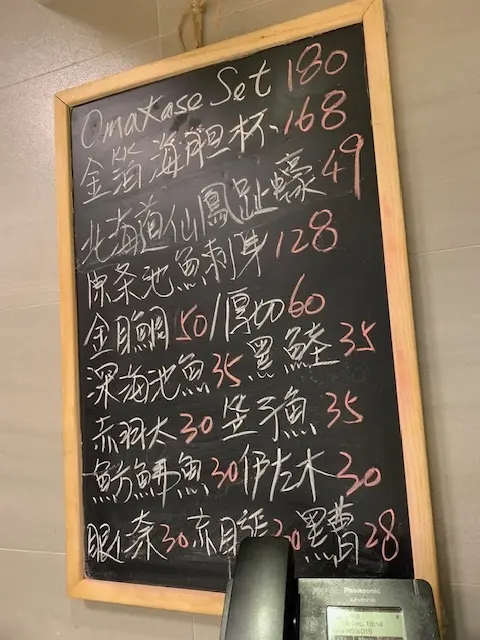 Omakase Set 180
金箔海胆杯 168
北海道仙鳳趾蠔 49
原条池魚刺身 128
金目鯛 50/厚切 60
深海池魚 35 黑鮭 35
赤羽太 30 笠子魚 35
魴鮄魚 30 伊左木 30
眼仁奈 30 赤目 30 黑曹 28
Panasonic